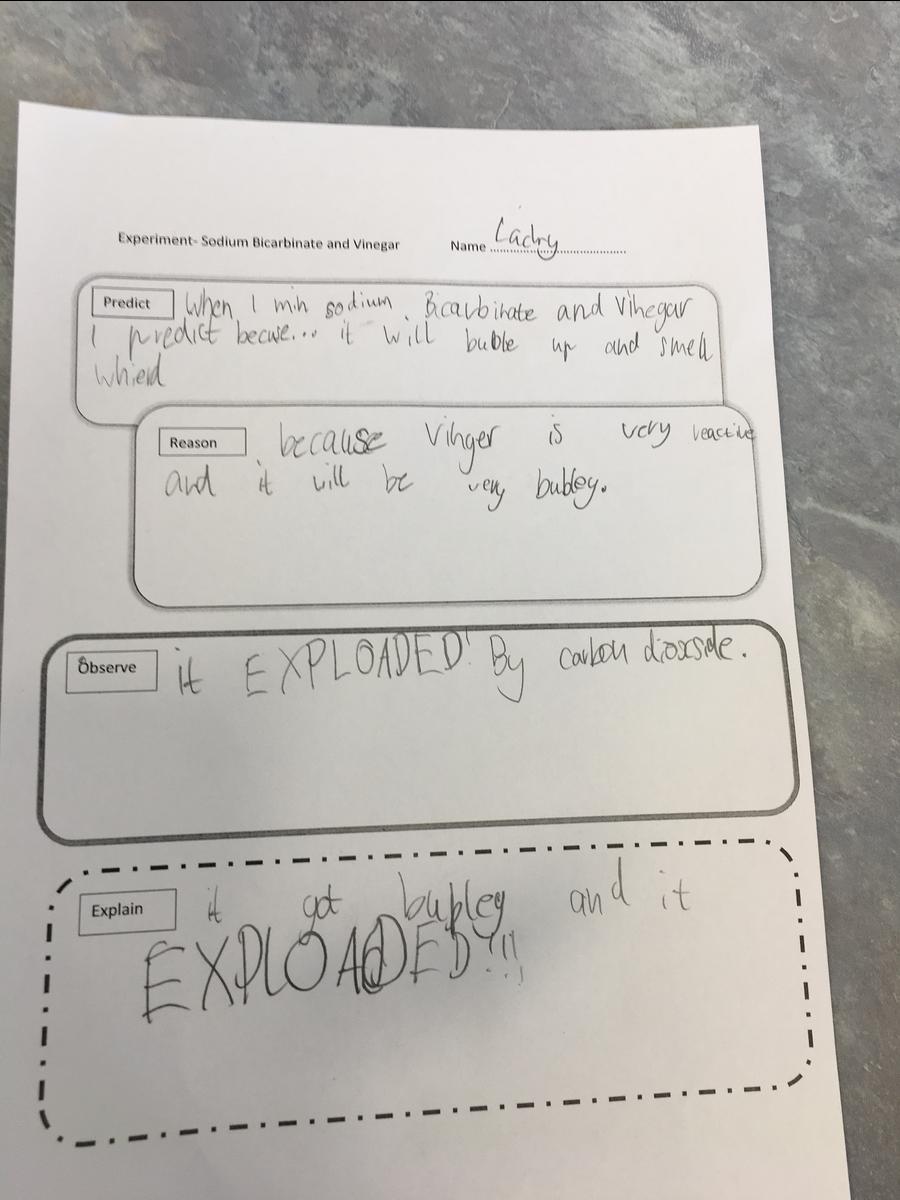 Experiment- Sodium Bicarbinate and Vinegar Name Lachy
Predict When I mix sodium Bicarbinate and Vinegar
I predict becuse... it will buble up and smell
Whierd
Reason because Vinger is very reactive
and it will be very bubley.
Observe it EXPLOADED! By carbon dioxside.
Explain it got bubley and it
EXPLOADED!!!